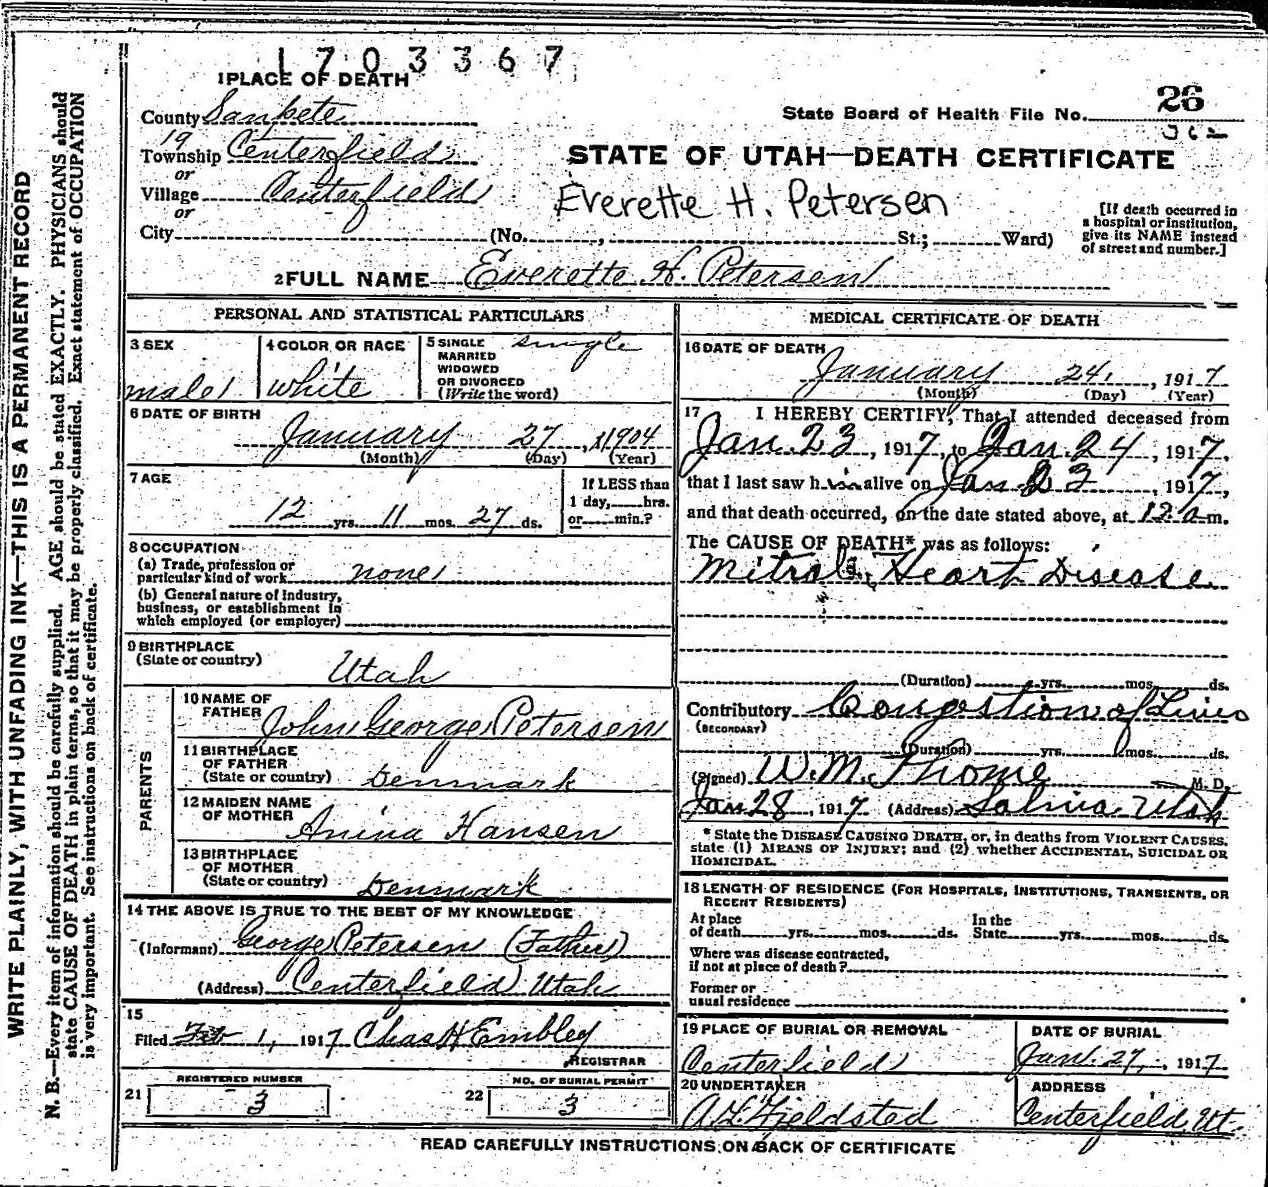 1703367
1 PLACE OF DEATH
County Sanpete
State Board of Health File No. 26
19
362
Township Centerfield
STATE OF UTAH—DEATH CERTIFICATE
or
Village Centerfield
Everette H. Petersen
or
City (No. , St.; Ward)
[If death occurred in
a hospital or institution,
give its NAME instead
of street and number.]
2 FULL NAME Everette H. Petersen
PERSONAL AND STATISTICAL PARTICULARS
3 SEX
male
4 COLOR OR RACE
white
5 SINGLE single
MARRIED
WIDOWED
OR DIVORCED
(Write the word)
6 DATE OF BIRTH
January 27, 1904
(Month) (Day) (Year)
7 AGE
12 yrs. 11 mos. 27 ds.
If LESS than
1 day, hrs.
or min.?
8 OCCUPATION
(a) Trade, profession or
particular kind of work none
(b) General nature of industry,
business, or establishment in
which employed (or employer)
9 BIRTHPLACE
(State or country) Utah
PARENTS
10 NAME OF
FATHER John George Petersen
11 BIRTHPLACE
OF FATHER
(State or country) Denmark
12 MAIDEN NAME
OF MOTHER Anina Hansen
13 BIRTHPLACE
OF MOTHER
(State or country) Denmark
14 THE ABOVE IS TRUE TO THE BEST OF MY KNOWLEDGE
(Informant) George Petersen (Father)
(Address) Centerfield Utah
15
Filed Feb 1, 1917 Chas H Embley
REGISTRAR
21
REGISTERED NUMBER
3
22
NO. OF BURIAL PERMIT
3
MEDICAL CERTIFICATE OF DEATH
16 DATE OF DEATH
January 24, 1917
(Month) (Day) (Year)
17 I HEREBY CERTIFY, That I attended deceased from
Jan. 23, 1917, to Jan. 24, 1917,
that I last saw him alive on Jan 23, 1917,
and that death occurred, on the date stated above, at 12 a m.
The CAUSE OF DEATH* was as follows:
Mitral Heart Disease
(Duration) yrs. mos. ds.
Contributory Congestion of Liver
(SECONDARY)
(Duration) yrs. mos. ds.
(Signed) W. M. Thome M. D.
Jan 28, 1917 (Address) Salina Utah
* State the DISEASE CAUSING DEATH, or, in deaths from VIOLENT CAUSES,
state (1) MEANS OF INJURY; and (2) whether ACCIDENTAL, SUICIDAL OR
HOMICIDAL.
18 LENGTH OF RESIDENCE (FOR HOSPITALS, INSTITUTIONS, TRANSIENTS, OR
RECENT RESIDENTS)
At place
of death yrs. mos. ds.
In the
State yrs. mos. ds.
Where was disease contracted,
if not at place of death?
Former or
usual residence
19 PLACE OF BURIAL OR REMOVAL
Centerfield
DATE OF BURIAL
Jan. 27, 1917
20 UNDERTAKER
A. L. Fjeldsted
ADDRESS
Centerfield, Ut.
READ CAREFULLY INSTRUCTIONS ON BACK OF CERTIFICATE
WRITE PLAINLY, WITH UNFADING INK—THIS IS A PERMANENT RECORD
N. B.—Every item of information should be carefully supplied. AGE should be stated EXACTLY. PHYSICIANS should
state CAUSE OF DEATH in plain terms, so that it may be properly classified. Exact statement of OCCUPATION
is very important. See instructions on back of certificate.